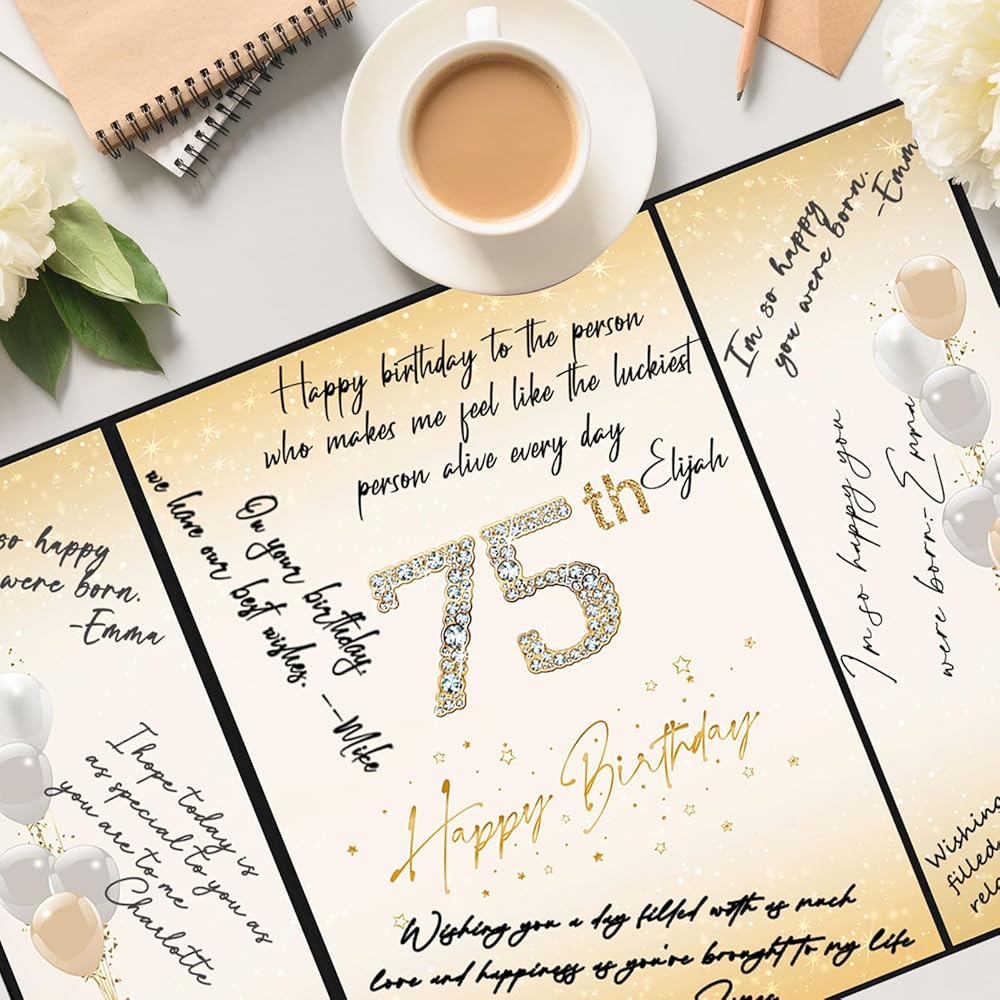 so happy
were born.
-Emma
I hope today is
as special to you as
you are to me
Charlotte
Happy birthday to the person
who makes me feel like the luckiest
person alive every day
Elijah
On your birthday,
we have our best wishes. --Mike
75th
Happy Birthday
Wishing you a day filled woth as much
love and happiness as you're brought to my life
I'm so happy
you were born.
-Emm
I'm so happy you
were born.- Emma
Wishing
filled
rel